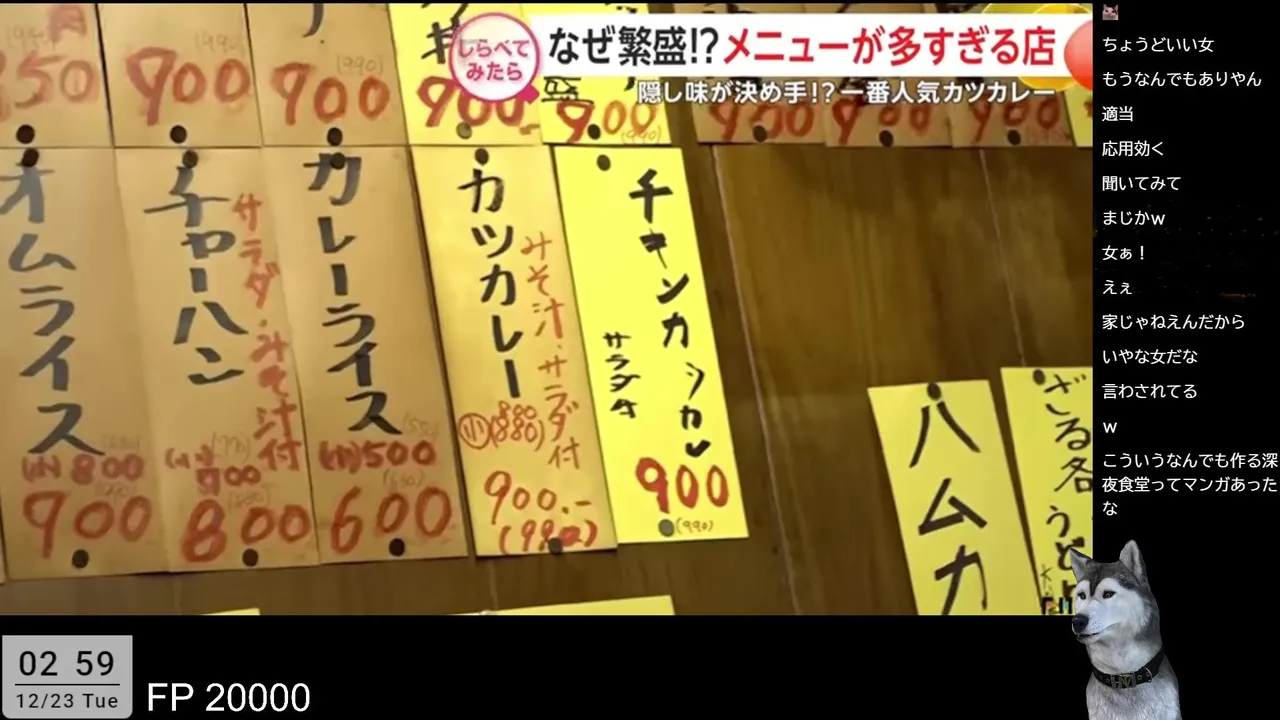 しらべて
みたら
なぜ繁盛!?メニューが多すぎる店
隠し味が決め手!?一番人気カツカレー
(990)
900
(990)
900
900
900
(990)
900
900
900
オムライス
(小)800
900
チャーハン
サラダ・みそ汁付
(小)700
800
カレーライス
(小)500
(550)
600
カツカレー
みそ汁・サラダ付
(小)(880)
900.-
(990)
チキンカツカレ
サラダ付
900
(990)
ハムカ
ざる各
うど
ちょうどいい女
もうなんでもありやん
適当
応用効く
聞いてみて
まじかw
女ぁ!
えぇ
家じゃねえんだから
いやな女だな
言わされてる
w
こういうなんでも作る深
夜食堂ってマンガあった
な
02 59
12/23 Tue
FP 20000